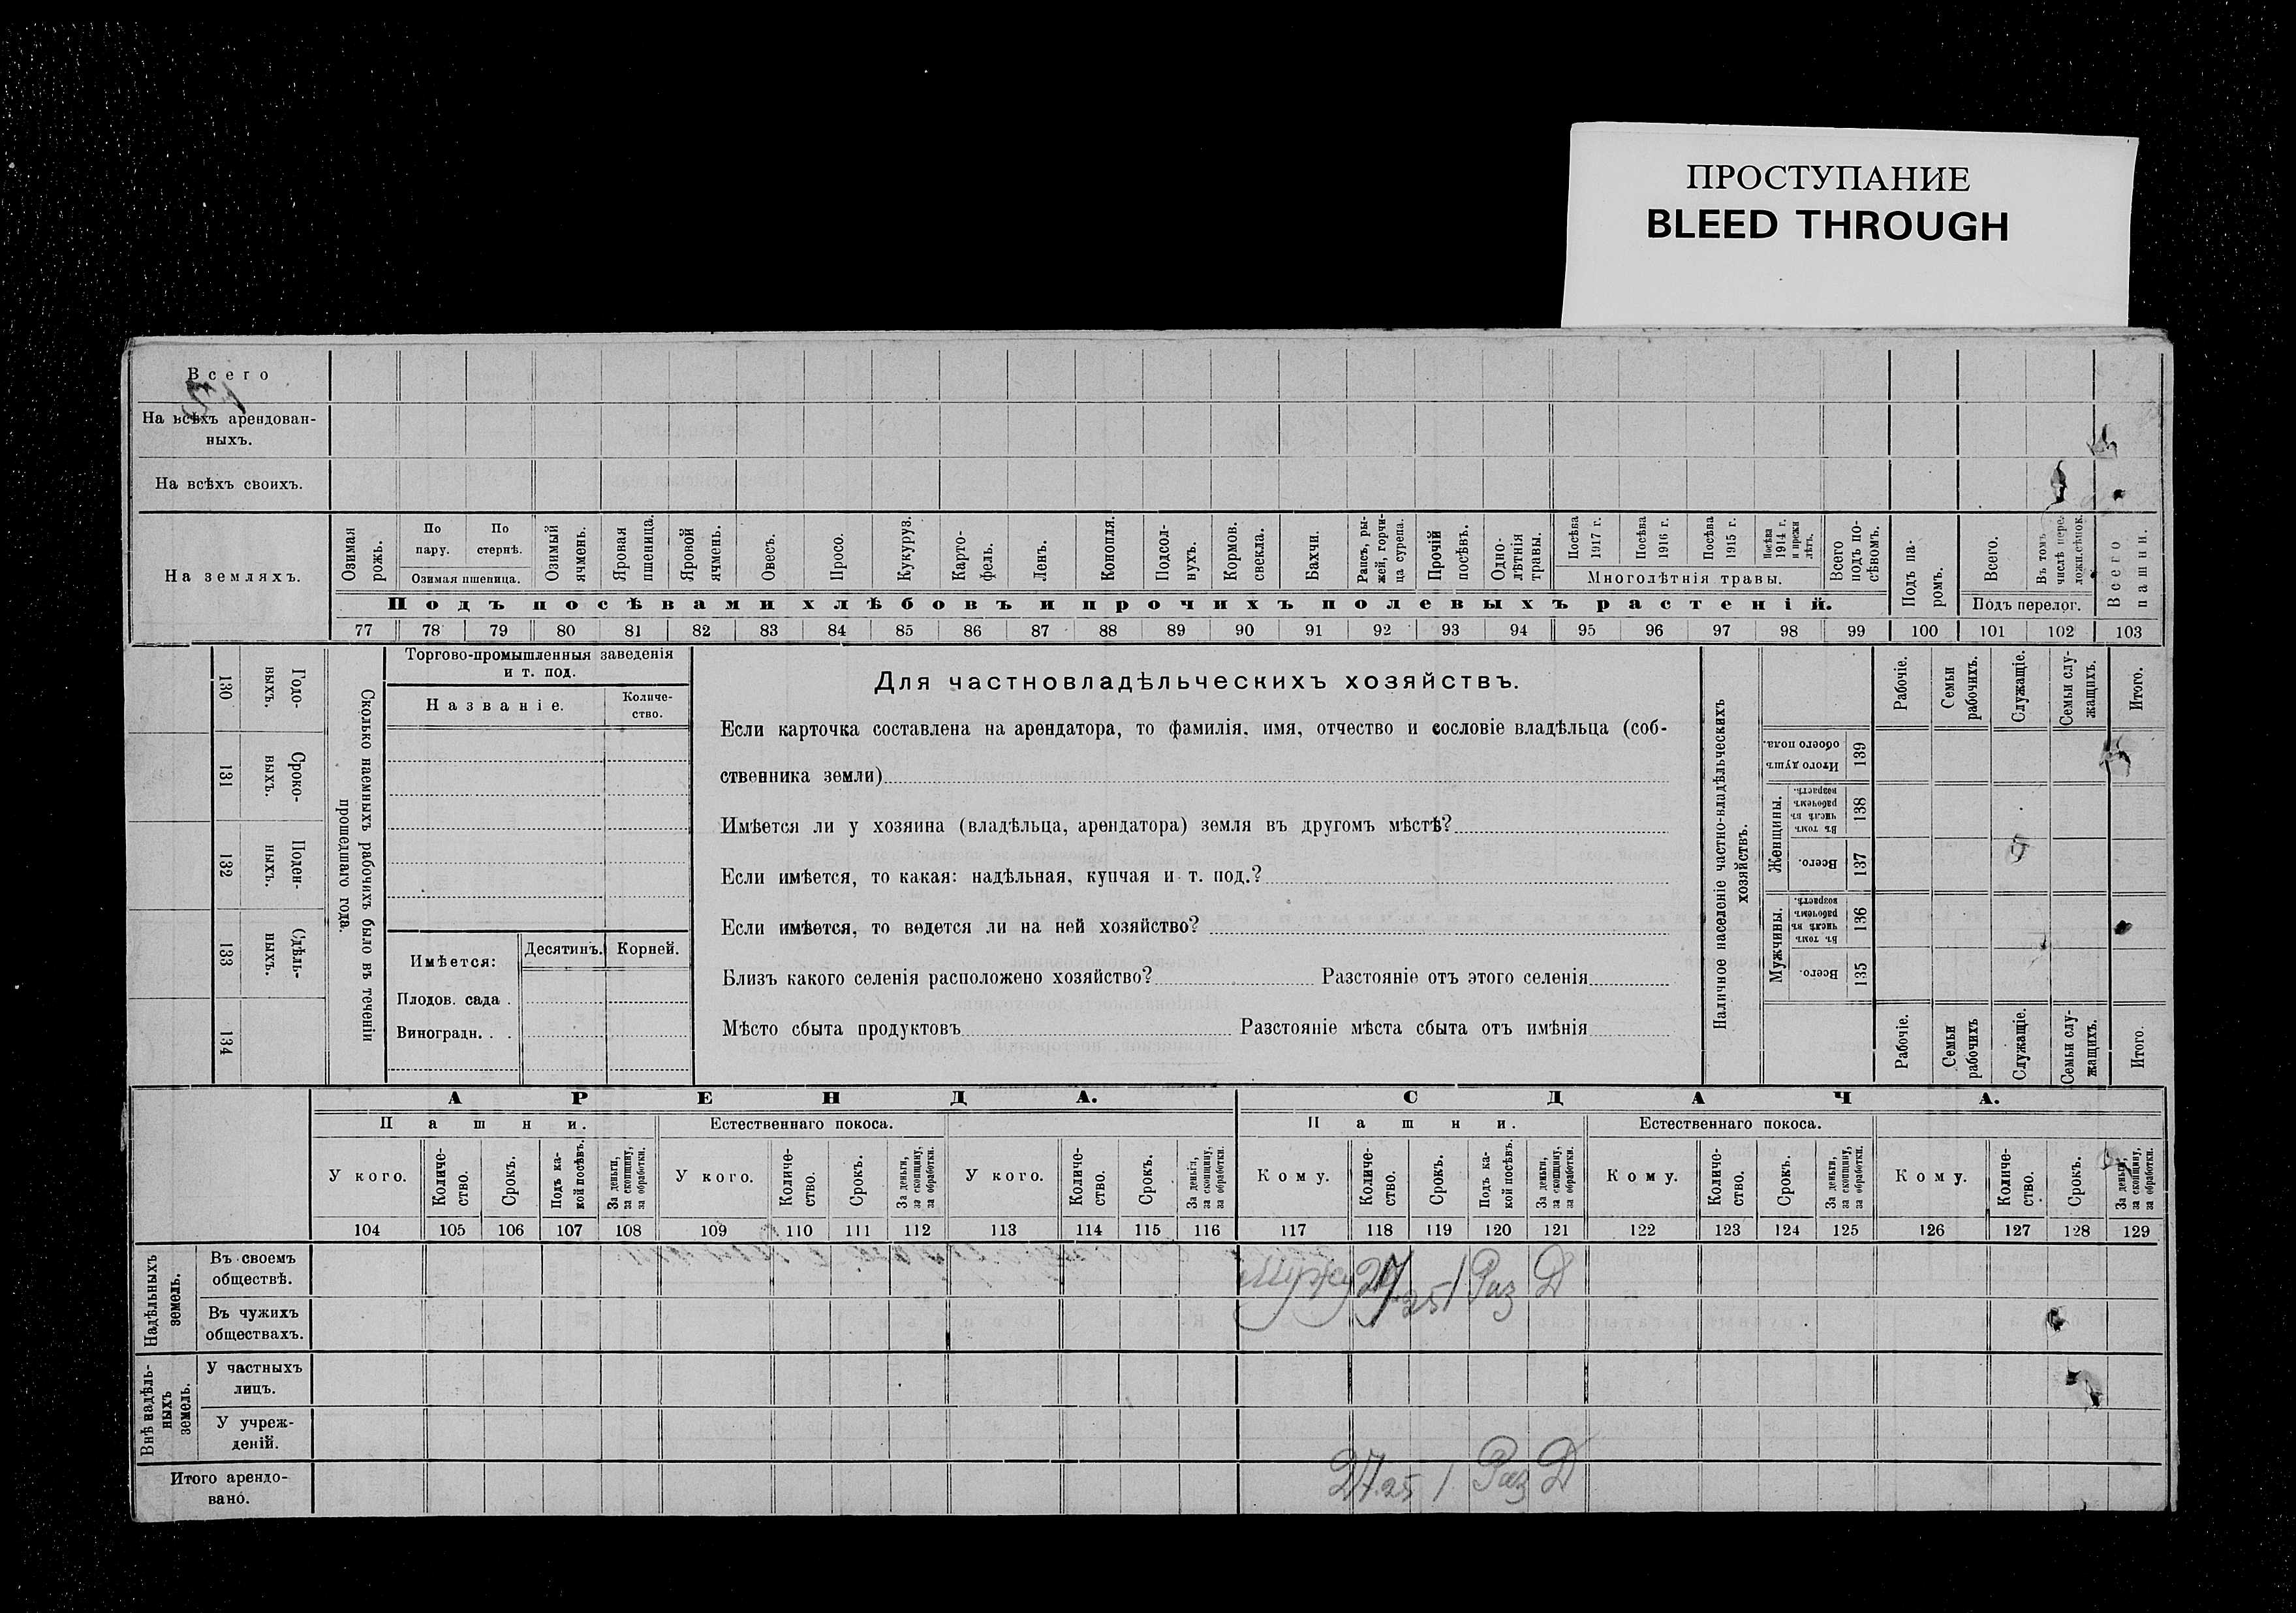 ПРОСТУПАНИЕ
BLEED THROUGH
Всего
На всѣхъ арендован-
ныхъ.
На всѣхъ своихъ.
На земляхъ.
Озимая рожь.
По пару.
По стернѣ.
Озимая пшеница.
Озимый ячмень.
Яровая пшеница.
Яровой ячмень.
Овесъ.
Просо.
Кукуруз.
Карто-
фель.
Ленъ.
Конопля.
Подсол-
нухъ.
Кормов. свекла.
Бахчи.
Рапсъ, ры-
жей, горчи-
ца сурепа.
Прочій посѣвъ.
Одно-
лѣтнія травы.
Посѣва 1917 г.
Посѣва 1916 г.
Посѣва 1915 г.
Посѣва 1914 г. и прежн лѣтъ.
Многолѣтнія травы.
Всего подъ по-
сѣвомъ.
Подъ па-
ромъ.
Всего.
Въ томъ числѣ пере-
ложн.сѣнок.
Подъ перелог.
Всего пашни.
Подъ посѣвами хлѣбовъ и прочихъ полевыхъ растеній.
77 78 79 80 81 82 83 84 85 86 87 88 89 90 91 92 93 94 95 96 97 98 99 100 101 102 103
130 Годо-
ныхъ.
131 Сроко-
ныхъ.
132 Поден-
ныхъ.
133 Сдѣль-
ныхъ.
134
Сколько наемныхъ рабочихъ было въ теченіи
прошедшаго года.
Торгово-промышленныя заведенія
и т. под.
Названіе.
Количе-
ство.
Имѣется:
Десятинъ.
Корней.
Плодов. сада .
Виноградн. . .
Для частновладѣльческихъ хозяйствъ.
Если карточка составлена на арендатора, то фамилія, имя, отчество и сословіе владѣльца (соб-
ственника земли)
Имѣется ли у хозяина (владѣльца, арендатора) земля въ другомъ мѣстѣ?
Если имѣется, то какая: надѣльная, купчая и т. под.?
Если имѣется, то ведется ли на ней хозяйство?
Близъ какого селенія расположено хозяйство? Разстояніе отъ этого селенія
Мѣсто сбыта продуктовъ Разстояніе мѣста сбыта отъ имѣнія
Наличное населеніе частно-владѣльческихъ
хозяйствъ.
Рабочіе.
Семьи рабочихъ.
Служащіе.
Семьи слу-
жащихъ.
Итого.
Итого душъ обоего пола. 139
Женщины.
Въ томъ числѣ въ рабочемъ возрастѣ. 138
Всего. 137
Мужчины.
Въ томъ числѣ въ рабочемъ возрастѣ. 136
Всего. 135
Рабочіе.
Семьи рабочихъ
Служащіе.
Семьи слу-
жащихъ.
Итого.
АРЕНДА.
СДАЧА.
Пашни.
Естественнаго покоса.
Пашни.
Естественнаго покоса.
У кого.
Количе-
ство.
Срокъ.
Подъ ка-
кой посѣвъ.
За деньги, за скопщину, за обработки.
У кого.
Количе-
ство.
Срокъ.
За деньги, за скопщину, за обработки.
У кого.
Количе-
ство.
Срокъ.
За деньги, за скопщину, за обработки.
Кому.
Количе-
ство.
Срокъ.
Подъ ка-
кой посѣвъ.
За деньги, за скопщину, за обработки.
Кому.
Количе-
ство.
Срокъ.
За деньги, за скопщину, за обработки.
Кому.
Количе-
ство.
Срокъ.
За деньги, за скопщину, за обработки.
104 105 106 107 108 109 110 111 112 113 114 115 116 117 118 119 120 121 122 123 124 125 126 127 128 129
Надѣльныхъ земель.
Въ своемъ
обществѣ.
27.25 1 Раз Д
Въ чужихъ
обществахъ.
Внѣ надѣль-
ныхъ земель.
У частныхъ
лицъ.
У учреж-
деній.
Итого арендо-
вано.
27.25 1 Раз Д